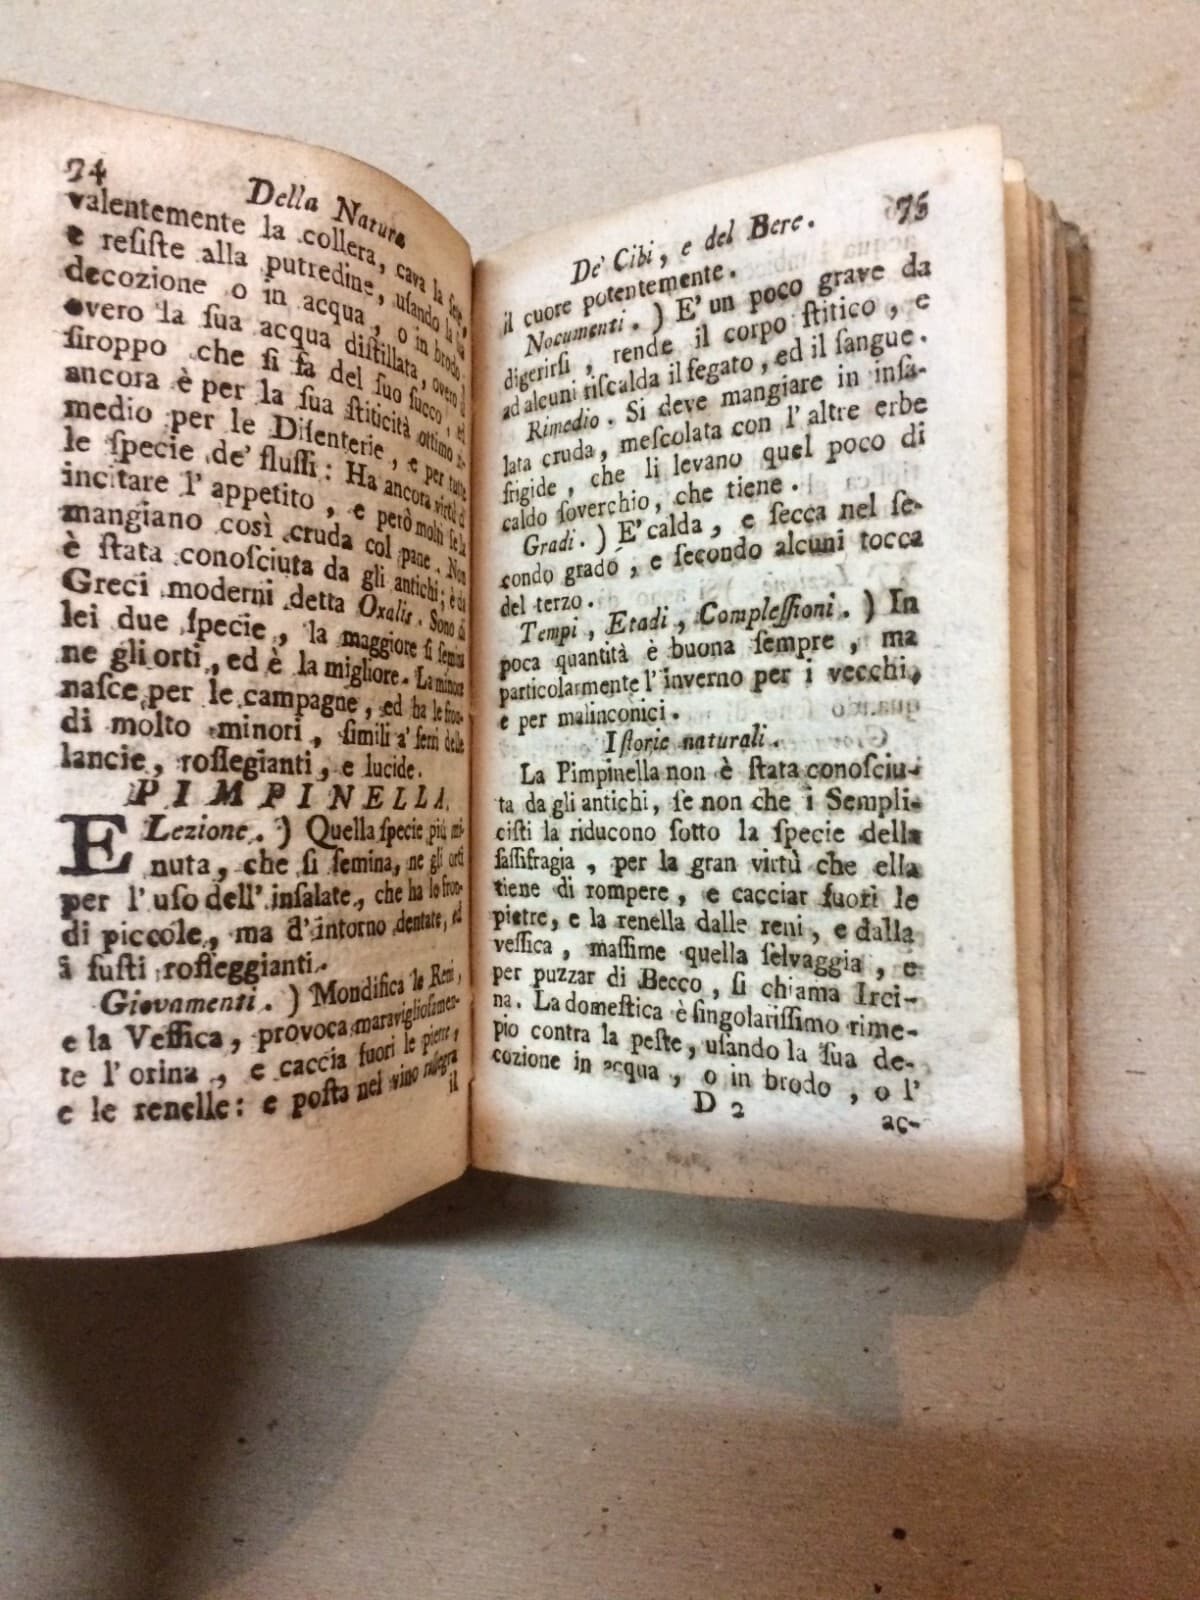 74
Della Natura
valentemente la collera, cava la sete,
e resiste alla putredine, usando la sua
decozione o in acqua, o in brodo,
overo la sua acqua distillata, overo il
siroppo che si fa del suo succo, ed
ancora è per la sua stiticità ottimo ri-
medio per le Disenterie, e per tutte
le specie de' flussi: Ha ancora virtù d'
incitare l'appetito, e però molti se la
mangiano così cruda col pane. Non
è stata conosciuta da gli antichi; è da
Greci moderni detta Oxalis. Sono di
lei due specie, la maggiore si semina
ne gli orti, ed è la migliore. La minore
nasce per le campagne, ed ha le fron-
di molto minori, simili a' ferri delle
lancie, rossegianti, e lucide.
PIMPINELLA.
ELezione.) Quella specie più mi-
nuta, che si semina, ne gli orti
per l'uso dell' insalate, che ha le fron-
di piccole, ma d'intorno dentate, ed
à fusti rosseggianti.
Giovamenti.) Mondifica le Reni,
e la Vessica, provoca maravigliosamen-
te l'orina, e caccia fuori le pietre,
e le renelle: e posta nel vino rallegra
il
De' Cibi, e del Bere. 75
il cuore potentemente.
Nocumenti.) E' un poco grave da
digerirsi, rende il corpo stitico, e
ad alcuni riscalda il fegato, ed il sangue.
Rimedio. Si deve mangiare in insa-
lata cruda, mescolata con l'altre erbe
frigide, che li levano quel poco di
caldo soverchio, che tiene.
Gradi.) E' calda, e secca nel se-
condo grado, e secondo alcuni tocca
del terzo.
Tempi, Etadi, Complessioni.) In
poca quantità è buona sempre, ma
particolarmente l'inverno per i vecchi,
e per malinconici.
Istorie naturali.
La Pimpinella non è stata conosciu-
ta da gli antichi, se non che i Sempli-
cisti la riducono sotto la specie della
sassifragia, per la gran virtù che ella
tiene di rompere, e cacciar fuori le
pietre, e la renella dalle reni, e dalla
vessica, massime quella selvaggia, e
per puzzar di Becco, si chiama Irci-
na. La domestica è singolarissimo rime-
pio contra la peste, usando la sua de-
cozione in acqua, o in brodo, o l'
D 2
ac-